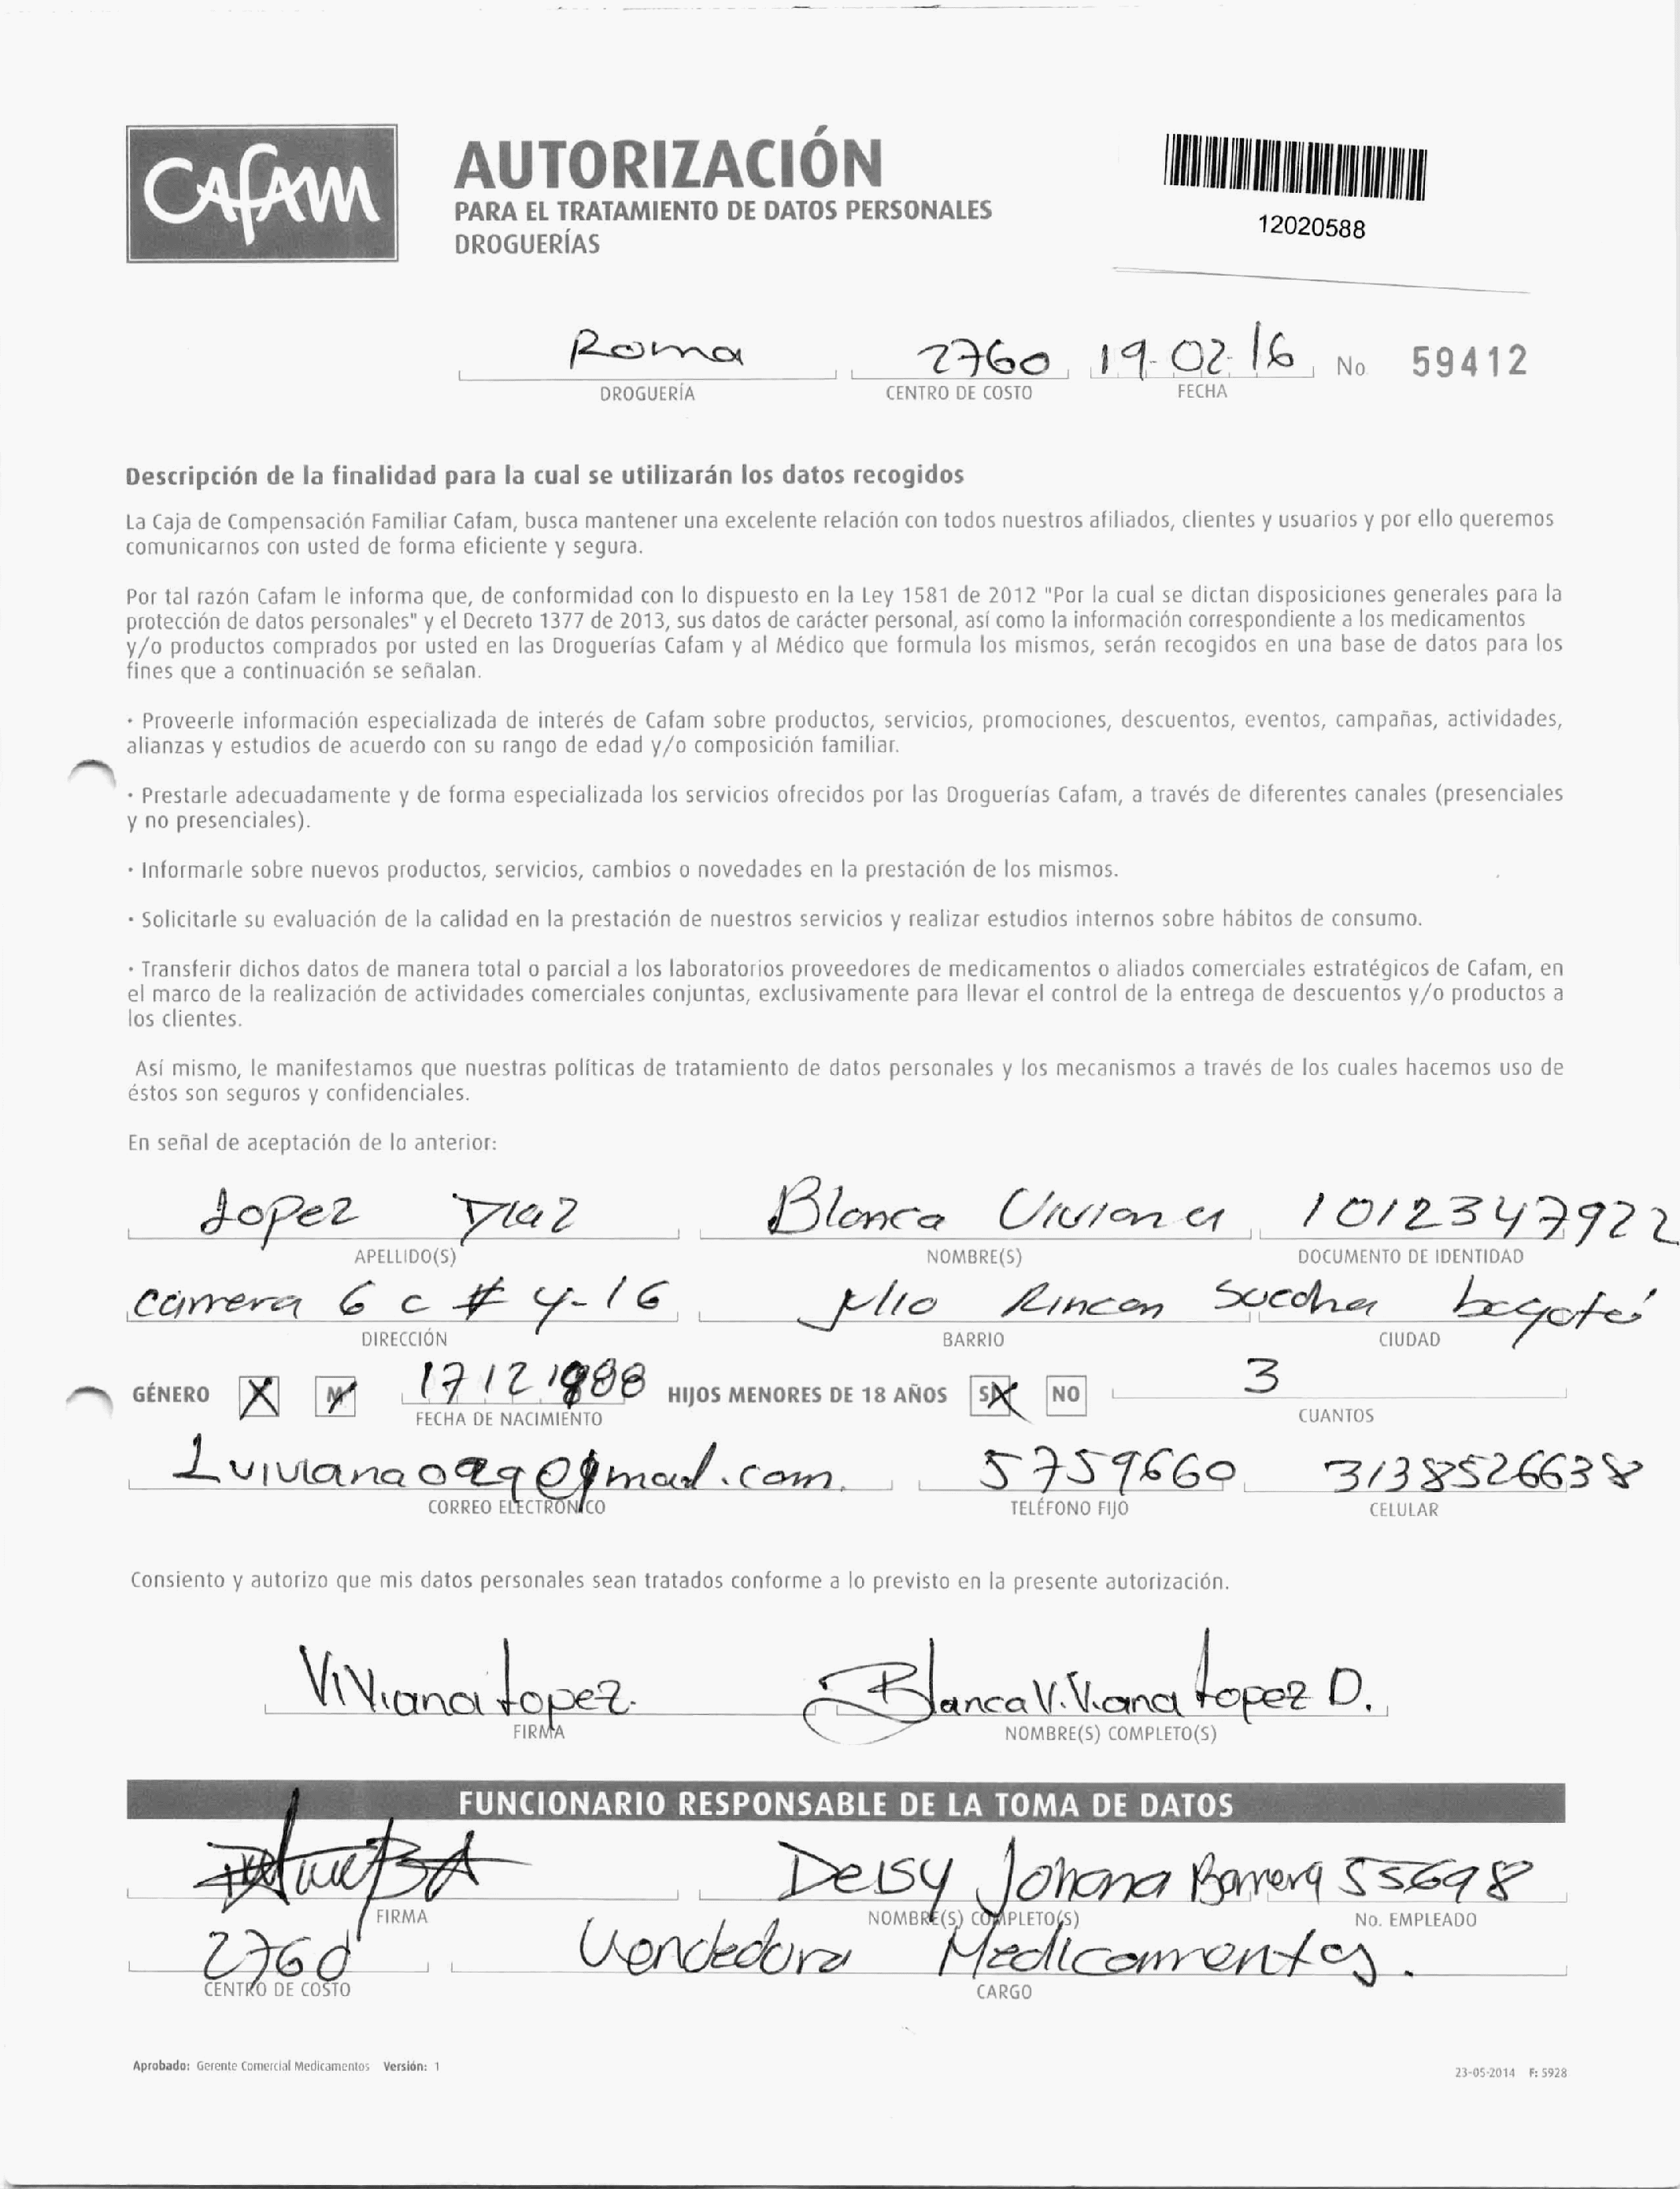 CAFAM
AUTORIZACIÓN
PARA EL TRATAMIENTO DE DATOS PERSONALES
DROGUERÍAS
12020588
Roma 2760 19-02-16 No 59412
DROGUERÍA CENTRO DE COSTO FECHA
Descripción de la finalidad para la cual se utilizarán los datos recogidos
La Caja de Compensación Familiar Cafam, busca mantener una excelente relación con todos nuestros afiliados, clientes y usuarios y por ello queremos
comunicarnos con usted de forma eficiente y segura.
Por tal razón Cafam le informa que, de conformidad con lo dispuesto en la Ley 1581 de 2012 "Por la cual se dictan disposiciones generales para la
protección de datos personales" y el Decreto 1377 de 2013, sus datos de carácter personal, así como la información correspondiente a los medicamentos
y/o productos comprados por usted en las Droguerías Cafam y al Médico que formula los mismos, serán recogidos en una base de datos para los
fines que a continuación se señalan.
· Proveerle información especializada de interés de Cafam sobre productos, servicios, promociones, descuentos, eventos, campañas, actividades,
alianzas y estudios de acuerdo con su rango de edad y/o composición familiar.
· Prestarle adecuadamente y de forma especializada los servicios ofrecidos por las Droguerías Cafam, a través de diferentes canales (presenciales
y no presenciales).
· Informarle sobre nuevos productos, servicios, cambios o novedades en la prestación de los mismos.
· Solicitarle su evaluación de la calidad en la prestación de nuestros servicios y realizar estudios internos sobre hábitos de consumo.
· Transferir dichos datos de manera total o parcial a los laboratorios proveedores de medicamentos o aliados comerciales estratégicos de Cafam, en
el marco de la realización de actividades comerciales conjuntas, exclusivamente para llevar el control de la entrega de descuentos y/o productos a
los clientes.
Así mismo, le manifestamos que nuestras políticas de tratamiento de datos personales y los mecanismos a través de los cuales hacemos uso de
éstos son seguros y confidenciales.
En señal de aceptación de lo anterior:
Lopez Diaz Blanca Viviana 1012347922
APELLIDO(S) NOMBRE(S) DOCUMENTO DE IDENTIDAD
carrera 6 c # 4-16 Julio Rincon Soacha bogotá
DIRECCIÓN BARRIO CIUDAD
GÉNERO X M 17 12 1988 HIJOS MENORES DE 18 AÑOS SI NO 3
FECHA DE NACIMIENTO CUANTOS
5759660 3138526638
CORREO ELECTRÓNICO TELÉFONO FIJO CELULAR
Consiento y autorizo que mis datos personales sean tratados conforme a lo previsto en la presente autorización.
Viviana Lopez. Blanca Viviana Lopez D.
FIRMA NOMBRE(S) COMPLETO(S)
FUNCIONARIO RESPONSABLE DE LA TOMA DE DATOS
Deisy Johana Barrera 55698
FIRMA NOMBRE(S) COMPLETO(S) No. EMPLEADO
2760 Vendedora Medicamentos.
CENTRO DE COSTO CARGO
Aprobado: Gerente Comercial Medicamentos Versión: 1
23-05-2014 F: 5928